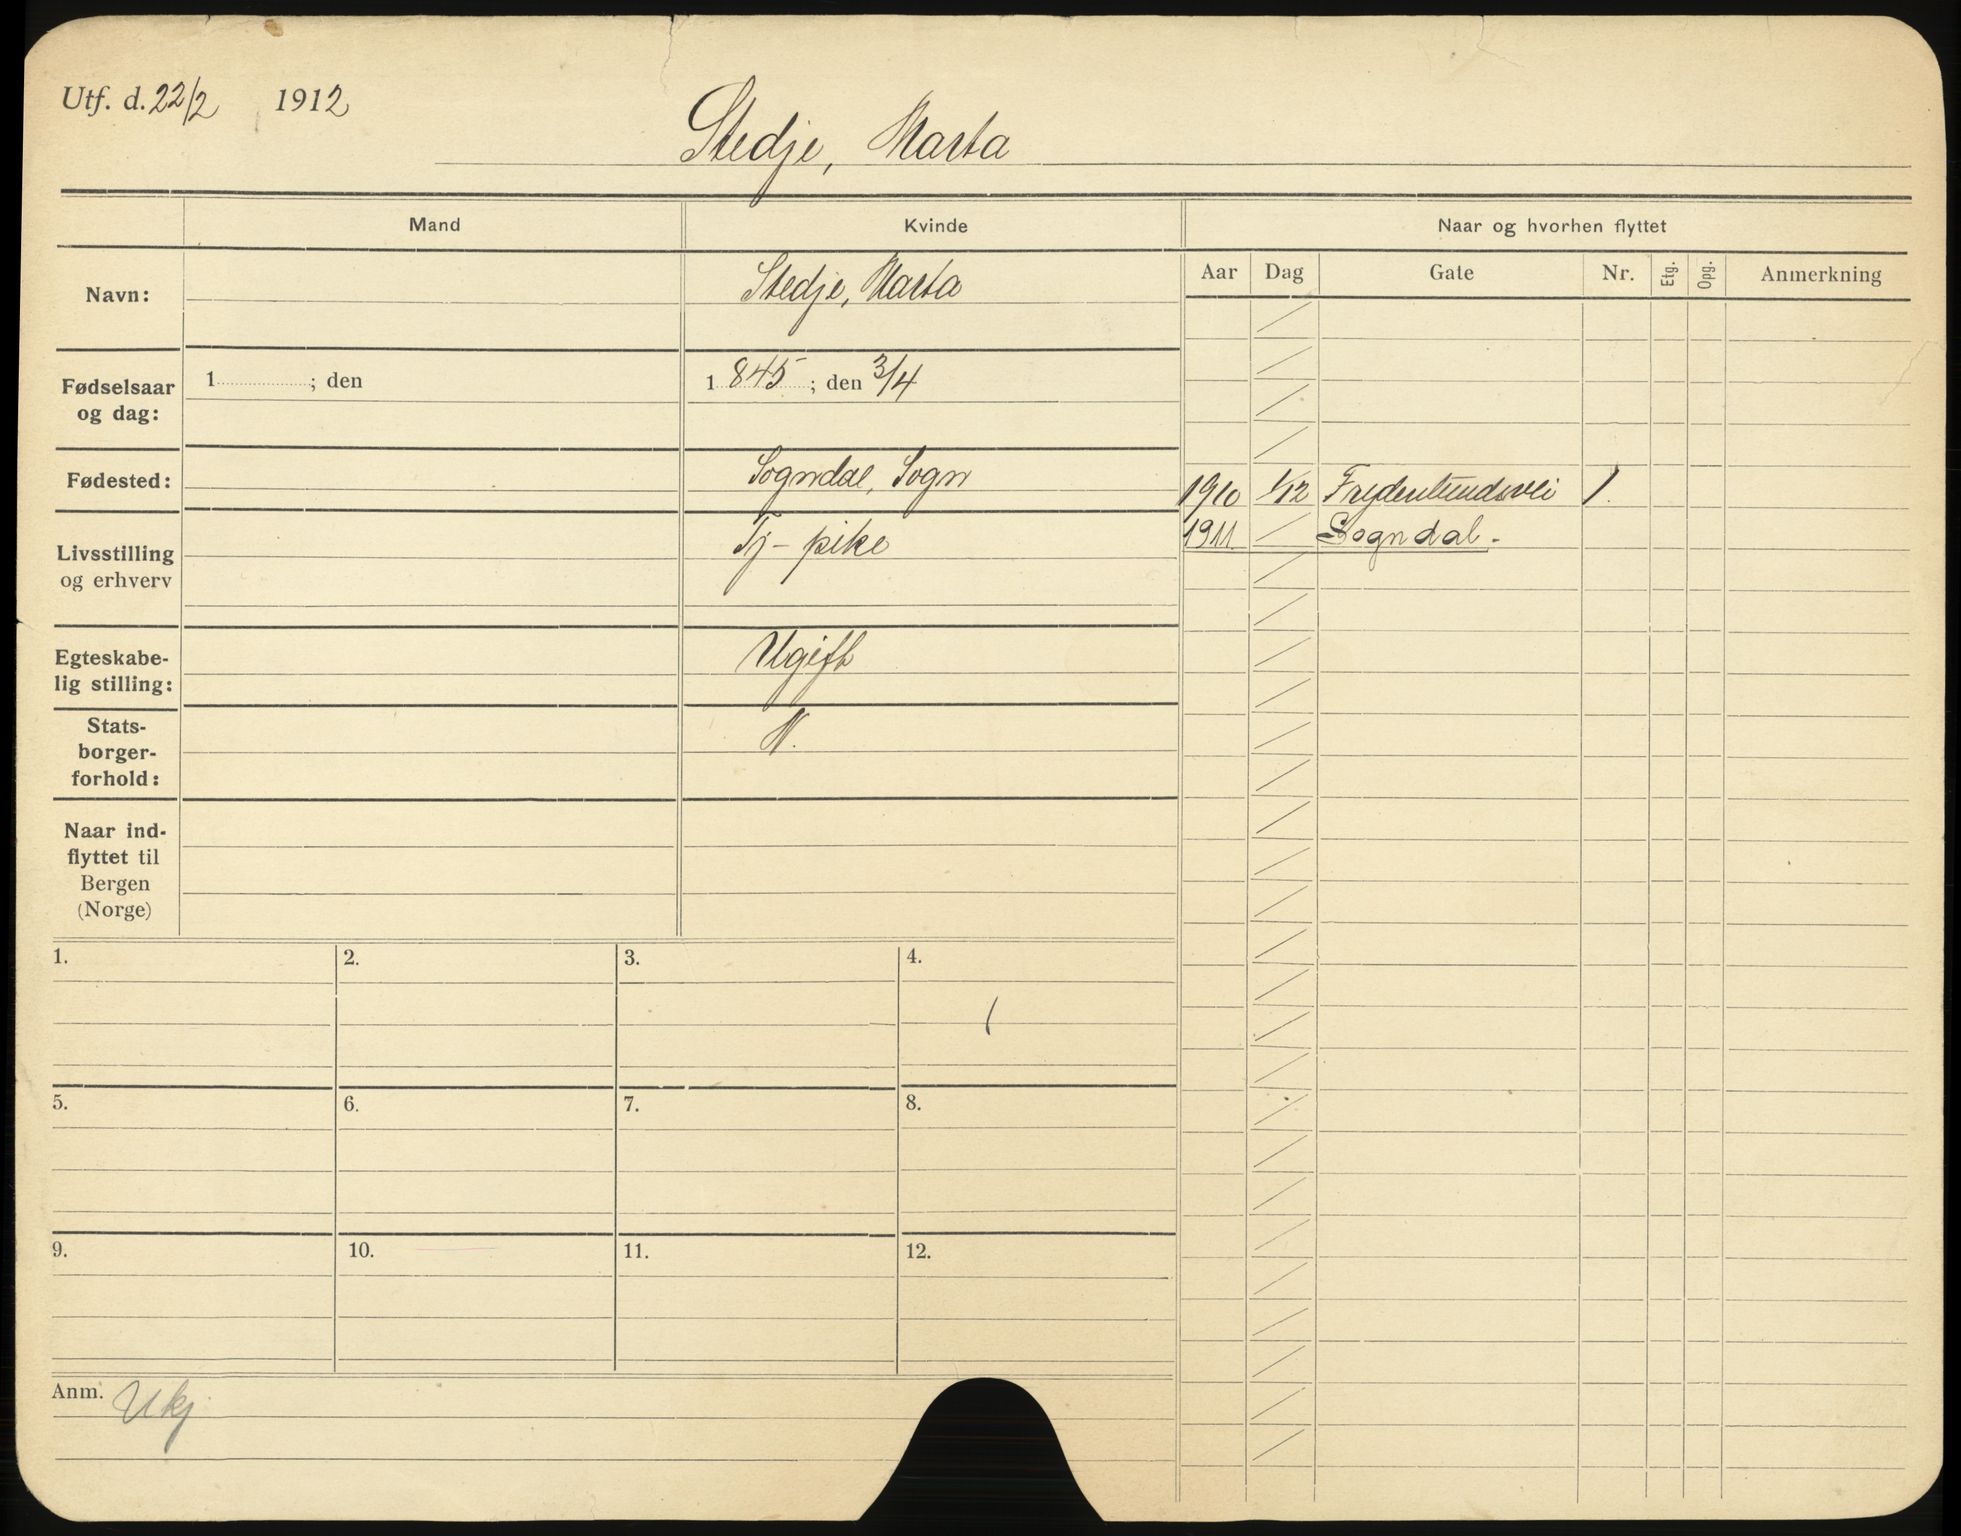 Utf. d. 22/2 1912
Stedje, Marta
Mand Kvinde Naar og hvorhen flyttet
Aar Dag Gate Nr. Etg. Opg. Anmerkning
Navn: Stedje, Marta
Fødselsaar og dag: 1 ; den 1845 ; den 3/4
Fødested: Sogndal, Sogn
1910 1/12 Frydenlundsvei 1.
1911 Sogndal.
Livsstilling og erhverv Tj-pike
Egteskabe-
lig stilling: Ugift
Stats-
borger-
forhold: N.
Naar ind-
flyttet til
Bergen
(Norge)
1. 2. 3. 4.
5. 6. 7. 8.
9. 10. 11. 12.
Anm. Ukj